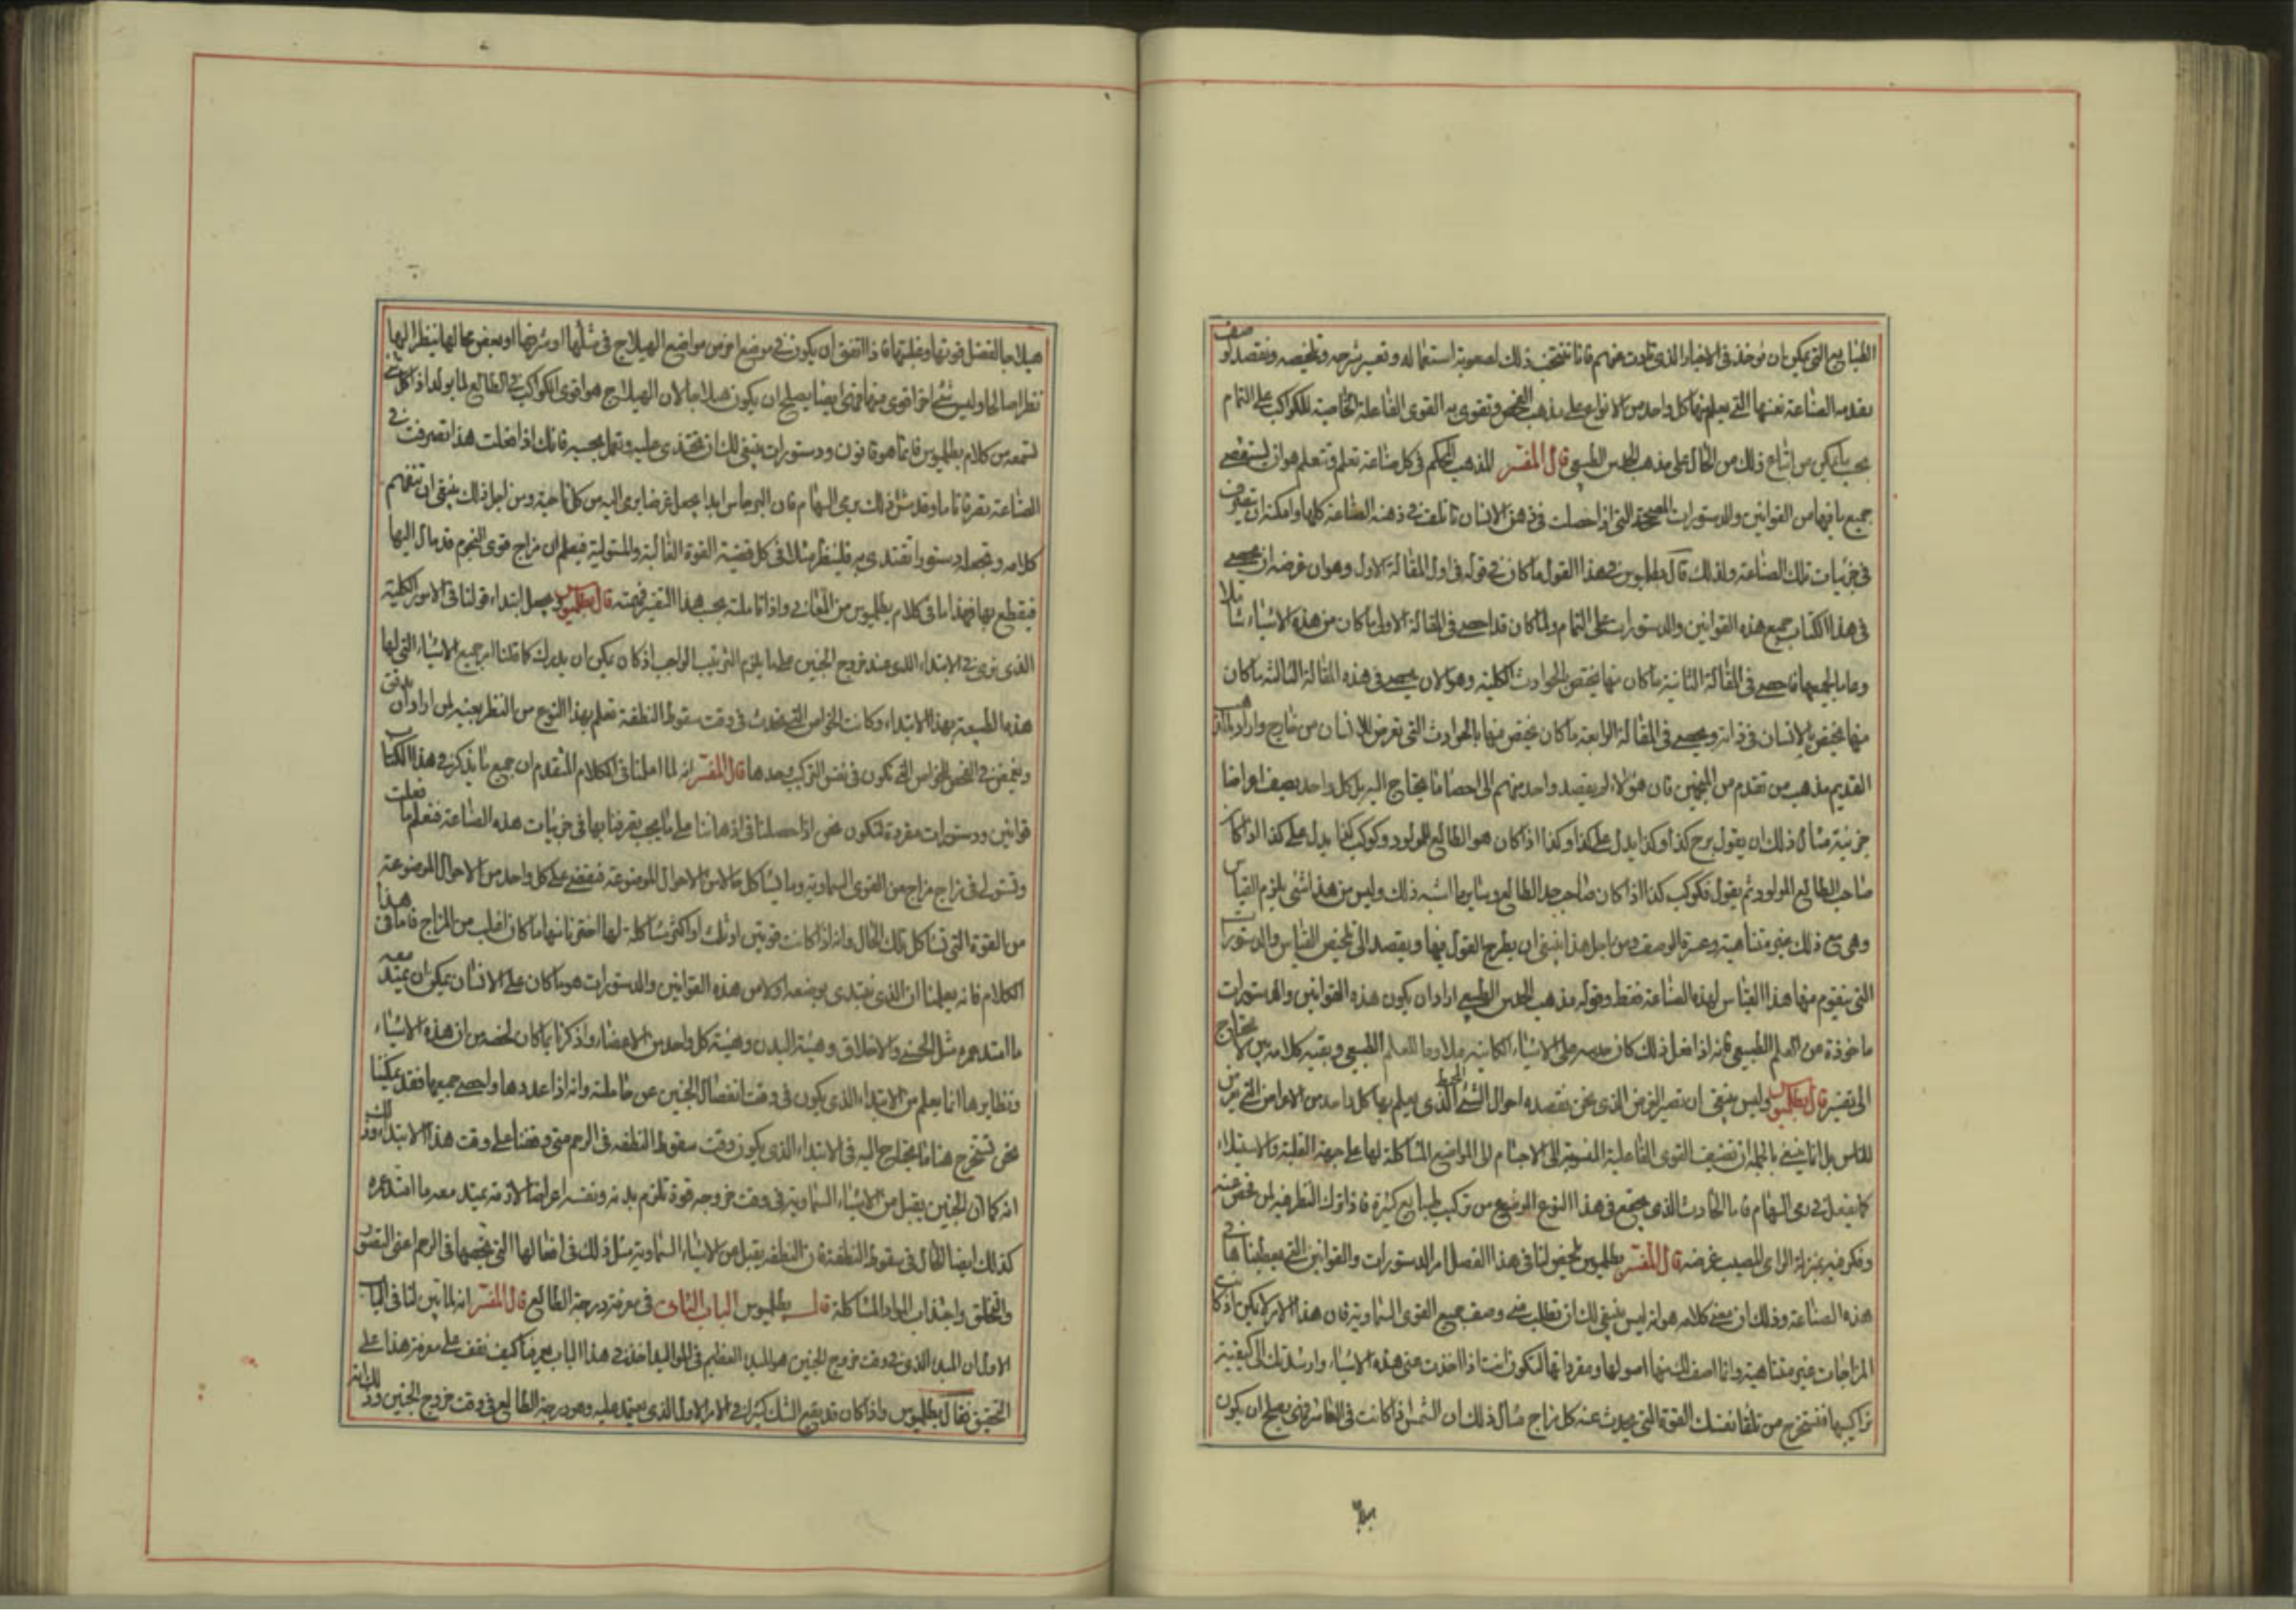 الطبايع التي يمكن ان توخذ في الاخبار الذي تادت منهم فانا نتجنب ذلك لصعوبة استعماله وتعسير شرحه وتلخيصه ونقصد لوصف
بقدمه الصناعة نفسها التي يعلم بها كل واحد من الانواع على مذهب الفحص وتقوى به القوى الفاعلة الخاصية للكواكب على التمام
بحسب ما يمكن من اتباع ذلك من الحال على مذهب الحدس الطبيعي قال المفسر المذهب المحكم في كل صناعة تعلم وتتعلم هو ان يستقصى
جميع ما فيها من القوانين والدستورات الصحيحة التي اذا حصلت في ذهن الانسان تالفت في ذهنه الصناعة كلها وامكنه ان يتصرف
في جزئيات تلك الصناعة ولذلك قال بطلميوس في هذا القول ما كان في قوله في اول المقالة الاول وهو ان غرضه ان يحصى
في هذا الكتاب جميع هذه القوانين والدستورات على التمام ولما كان قد احصى في المقالة الاولى ما كان من هذه الاشياء شاملا
وعاما لجميعها فاحصى في المقالة الثانية ما كان منها يختص بالحوادث الكلية وهو الان يحصى في هذه المقالة الثالثة ما كان
منها يختص بالانسان في ذاته ويحصى في المقالة الرابعة ما كان يختص منها بالحوادث التي تعرض للانسان من خارج واراد بالمذهب
القديم مذهب من تقدم من المنجمين فان هؤلاء لم يقصد واحد منهم الى احصا ما يحتاج اليه بل كل واحد يصف اعراضا
جزئية مثال ذلك ان يقول برج كذا وكذا يدل على كذا وكذا اذا كان هو الطالع للمولود وكوكب كذا يدل على كذا اذا كان
صاحب الطالع المولود ثم يقول فكوكب كذا اذا كان صاحب حد الطالع وساير ما اشبه ذلك وليس من هذا شي يلزم القياس
وهي مع ذلك غير متناهية وعسرة الوصف ومن اجل هذا ينبغي ان يطرح القول فيها ويقصد الى تلخيص القياس والدستورات
التي يتقوم منها هذا القياس لهذه الصناعة فقط وقوله مذهب الحدس الطبيعي اراد ان يكون هذه القوانين والدستورات
ماخوذة من العلم الطبيعي فانه اذا فعل ذلك كان حدسه على الاشياء الكاينة ملاوما للعلم الطبيعي وبقية كلامه بين لا يحتاج
الى تفسير قال بطلميوس وليس ينبغي ان نصير الغرض الذي نحن نقصده احوال الشي المحيط الذي يعلم بها كل واحد من الاعراض التي تعرض
للناس بل انما ينبغي بالجملة ان نضيف القوى الفاعلية المنسوبة الى الاجسام الى المواضيع المشاكلة لها على جهة الغلبة والاستيلاء
كما يفعل في رمي السهام فاما الحادث الذي يجتمع في هذا النوع الموضوع من تركيب طبايع كثيرة فاذا نترك النظر فيه لمن فحص عنه
وفكر فيه بمنزلة الرامي المصيب غرضه قال المفسر بطلميوس يلخص لنا في هذا الفصل امر الدستورات والقوانين التي يعطيناها في
هذه الصناعة وذلك ان معنى كلامه هو انه ليس ينبغي لك ان تطلب مني وصف جميع القوى السماوية فان هذا الامر لا يمكن اذ كانت
المزاجات غير متناهية وانما اصف لك منها اصولها ومفرداتها لتكون انت اذا اخذت مني هذه الاشياء وارشدتك الى كيفية
تراكيبها فتستخرج من تلقا نفسك القوة التي يحدث عنه كل مزاج مثال ذلك ان الشمس اذا كانت في العاشر فهي يصلح ان يكون
هيلاجا لفضل قوتها وغلبتها فاذا اتفق ان يكون في موضع اخر من مواضع الهيلاج في مثلها او شرفها او بعض حالها ينظر اليها
نظرا صالحا وليس شي اخر اقوى منها فهي ايضا يصلح ان يكون هيلاجا لان الهيلاج هو اقوى الكواكب في الطالع لما يولد اذا كل شي
تسمعه من كلام بطلميوس فانما هو قانون ودستورات ينبغي لك ان تحتذي عليه وتعمل بحسبه فانك اذا فعلت هذا تصرفت في
الصناعة تصرفا تاما وقد شبه ذلك برمي السهام فان البرجاس ابدا يجعل غرضا يرمى اليه من كل ناحية ومن اجل ذلك ينبغي ان تتفهم
كلامه وتجعله دستورا تقتدي به فلينظر مثلا في كل قضية القوة الغالبة والمستولية فيعلم ان مزاج قوى النجوم قد مال اليها
فيقطع بها فهذا ما في كلام بطلميوس من المعاني واذا تاملته بحسب هذا التفسير فهمته قال بطلميوس ويجعل ابتداء قولنا في الامور الكلية
الذي نرى في الابتداء الذي عند خروج الجنين على ما يلزم الترتيب الواجب اذ كان يمكن ان يدرك كما قلنا امر جميع الاشياء التي لها
هذه الطبيعة بهذا الابتداء وكانت الخواص التي تحدث في وقت سقوط النطفة تعلم بهذا النوع من النظر بعينه لمن اراد ان يدقق
ويفحص في الفحص الخواص التي تكون في نفس التركيب وحدها قال المفسر انه لما اعلمنا في الكلام المتقدم ان جميع ما يذكر في هذا الكتاب
قوانين ودستورات مفردة لتكون نحن اذا حصلنا في اذهاننا على ما يجب تصرفنا بها في جزئيات هذه الصناعة فنعلم ما فعلت
وتستولي في مزاج مزاج من القوى السماوية وما يشاكل حالا من الاحوال الموضوعة فيقضى على كل واحد من الاحوال الموضوعة
من القوة التي تشاكل تلك الحال وانه اذا كانت قوتين او ثلث او اكثر مشاكلة لها اخترنا منها ما كان اغلب من المزاج فاما في هذا
الكلام فانه يعلمنا ان الذي نبتدى بوضعه اولا من هذه القوانين والدستورات هو ما كان على الانسان يمكن ان يمتد معه
ما امتد عمره مثل الحسن والاخلاق وهيئة البدن وهيئة كل واحد من الاعضاء واذكرنا بما كان لخصه من ان هذه الاشياء
ونظايرها انما يعلم من الابتداء الذي يكون في وقت انفصال الجنين عن حاملته وانه اذا عددها واحصى جميعها فقد يمكننا
نحن نستخرج هنا ما يحتاج اليه في الابتداء الذي يكون وقت سقوط النطفة في الرحم متى وقفنا على وقت هذا الابتداء وذلك
انه كما ان الجنين يقبل من الاشياء السماوية في وقت خروجه قوة تلزم بدنه ونفسه اعراضا لازمة يمتد معه ما امتد عمره
كذلك ايضا الحال في سقوط النطفة فان النطفة يقبل من الاشياء السماوية مثل ذلك في افعالها التي يخصها في الرحم اعني التصور
والتخلق واجتذاب المواد المشاكلة قال بطلميوس الباب الثاني في معرفة درجة الطالع قال المفسر انه لما بين لنا في الباب
الاول ان المبدا الذي في وقت خروج الجنين هو المبدا العظيم في المواليد اخذ في هذا الباب يعرفنا كيف نقف على معرفة هذا على
التحقيق فقال بطلميوس واذا كان قد يقع الشك كثيرا في الامر الاول الذي يعتمد عليه وهو درجة الطالع في وقت خروج الجنين وذلك انه